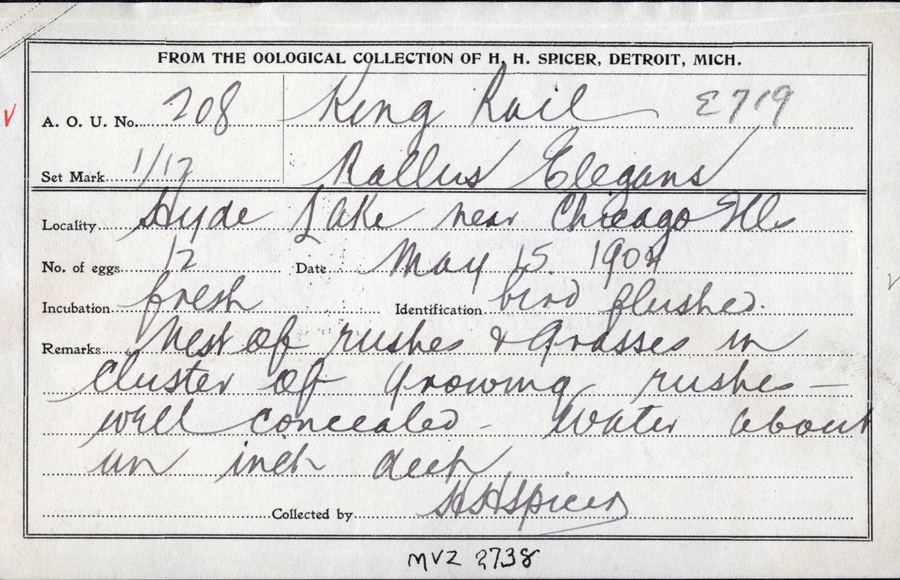 FROM THE OOLOGICAL COLLECTION OF H. H. SPICER, DETROIT, MICH.
A. O. U. No. 208 King Rail E719
Set Mark 1/12 Rallus Elegans
Locality Hyde Lake near Chicago Ills
No. of eggs 12 Date May 15 1904
Incubation fresh Identification bird flushed.
Remarks Nest of rushes & Grasses in
Cluster of growing rushes –
well concealed – Water about
un inch deep
Collected by HHSpicer
MVZ 2738